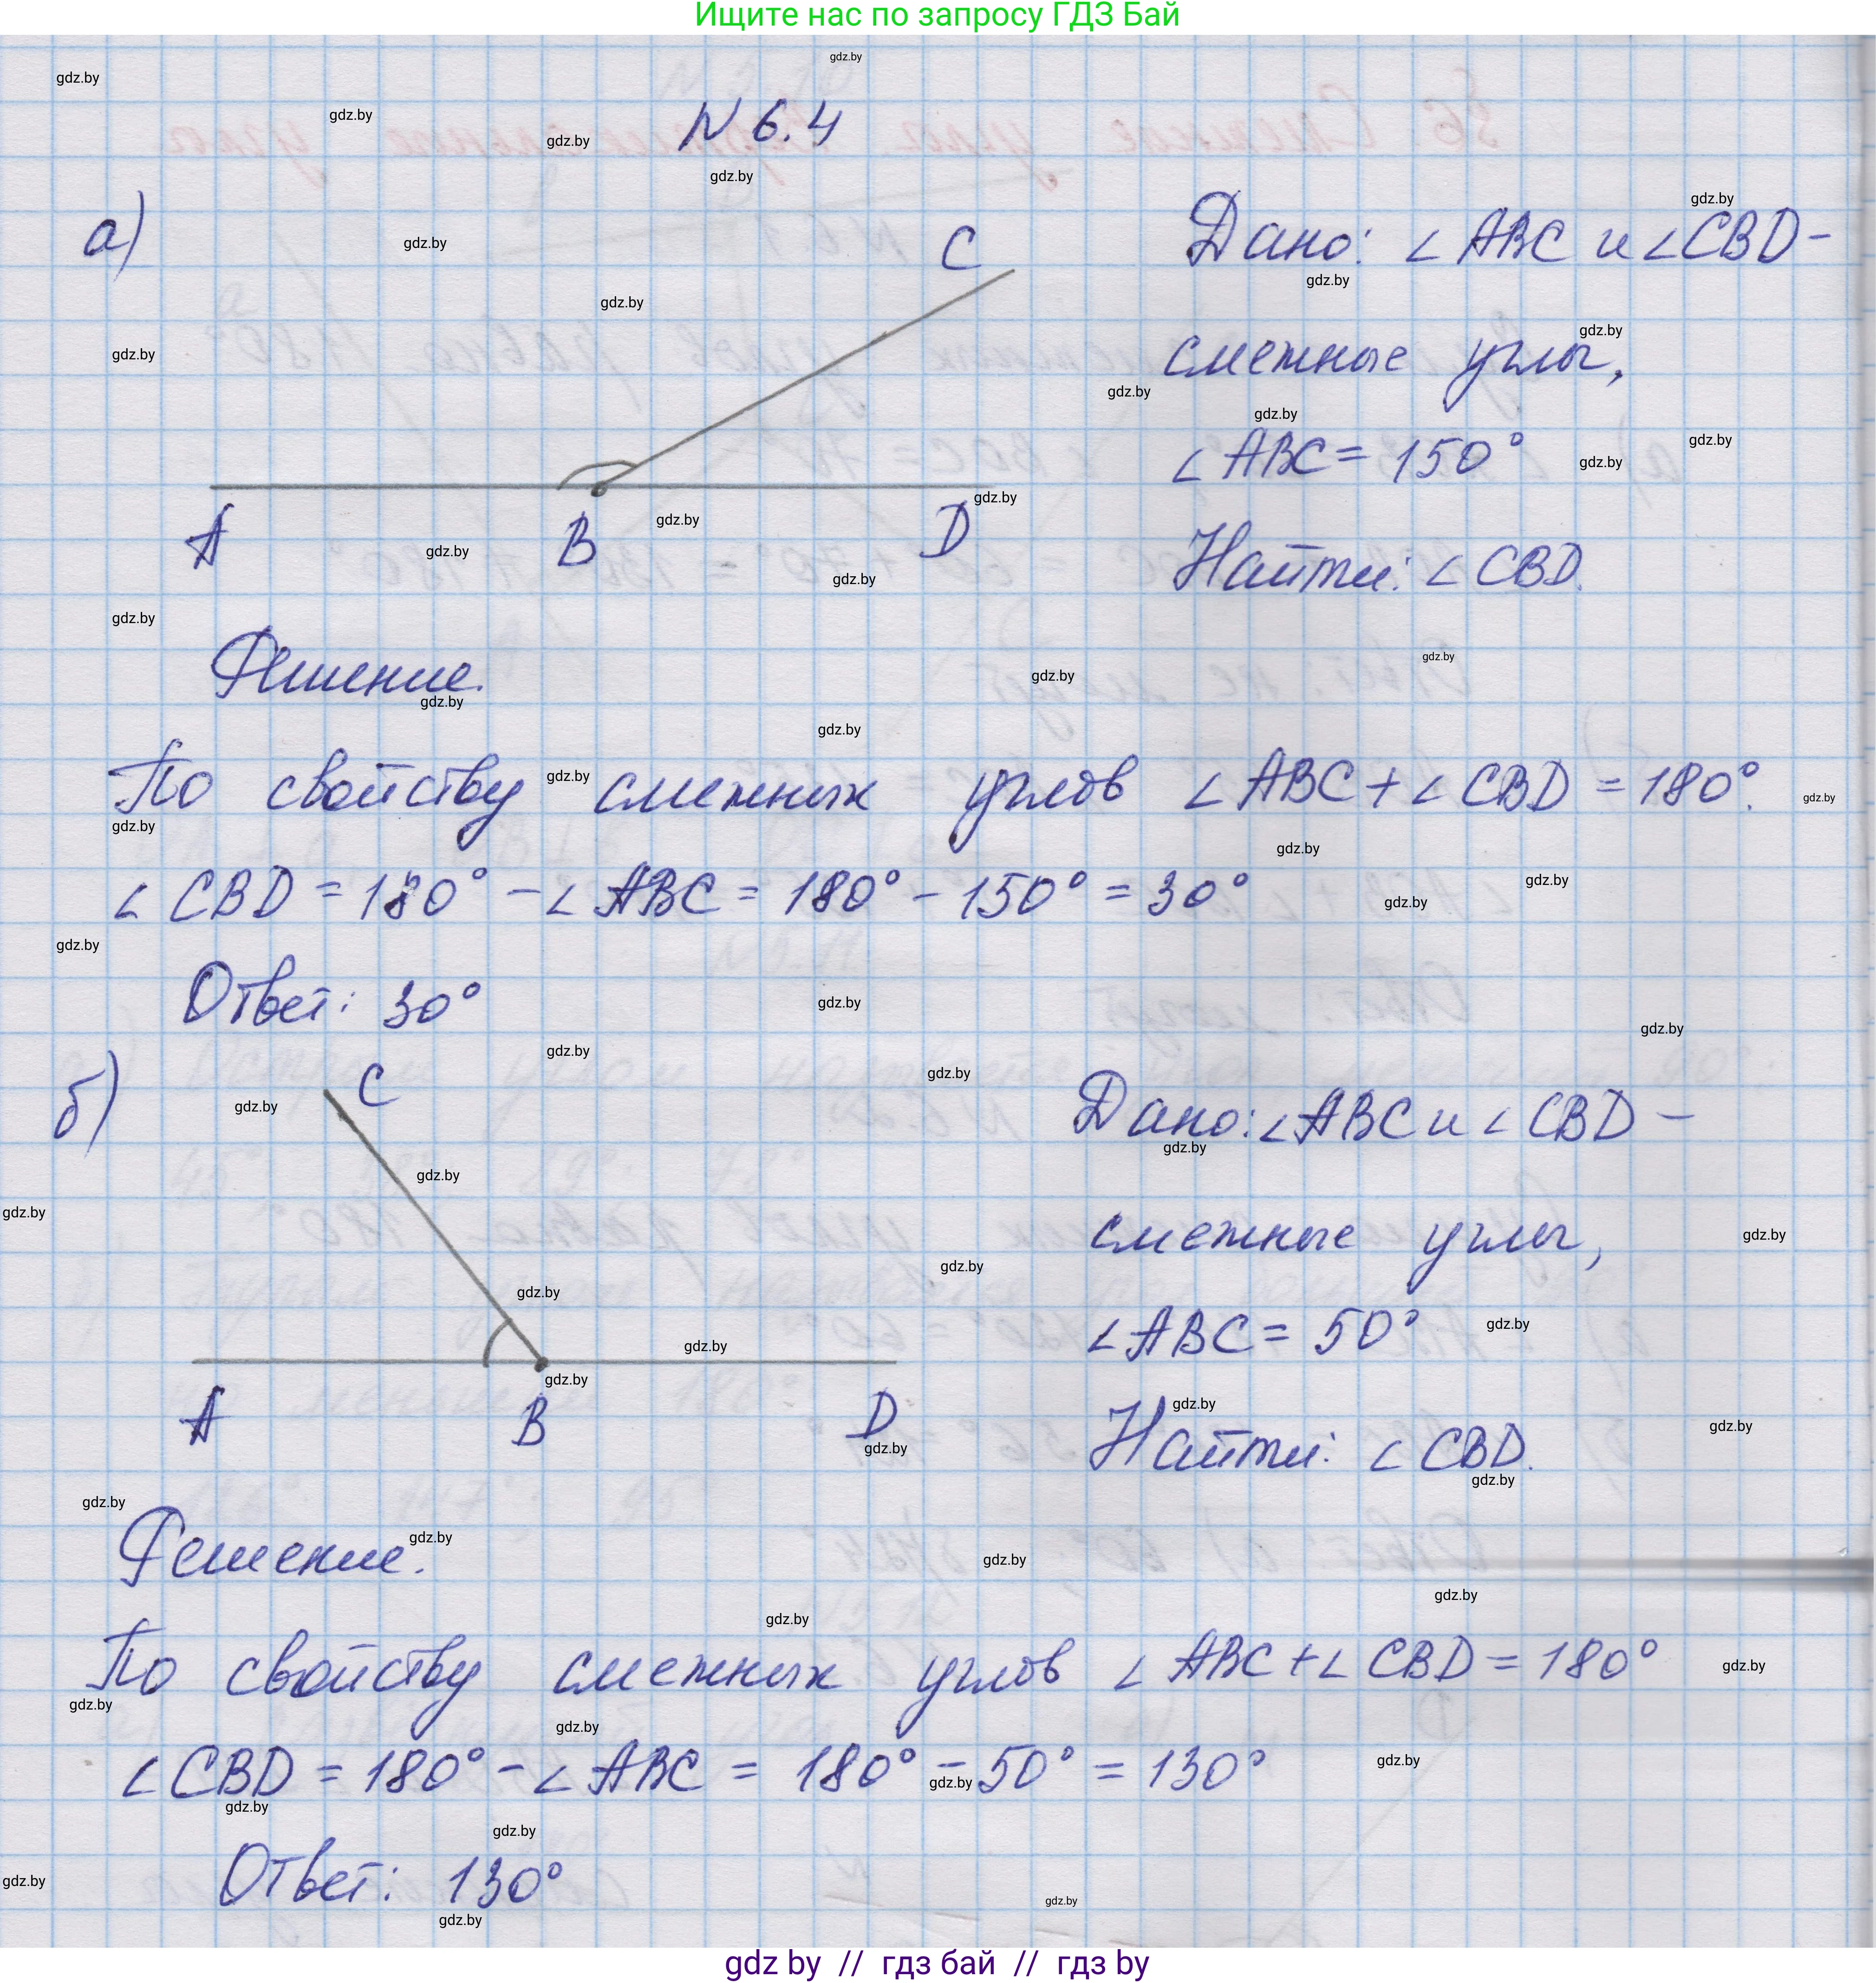 Ищите нас по запросу ГДЗ Бай
N 6.4
а)
C
A
B
D
Дано: ∠ABC и ∠CBD-
смежные углы,
∠ABC = 150°
Найти: ∠CBD.
Решение.
По свойству смежных углов ∠ABC + ∠CBD = 180°.
∠CBD = 180° - ∠ABC = 180° - 150° = 30°
Ответ: 30°
б)
C
A
B
D
Дано: ∠ABC и ∠CBD -
смежные углы,
∠ABC = 50°
Найти: ∠CBD.
Решение.
По свойству смежных углов ∠ABC + ∠CBD = 180°
∠CBD = 180° - ∠ABC = 180° - 50° = 130°
Ответ: 130°
gdz by // гдз бай // гдз by